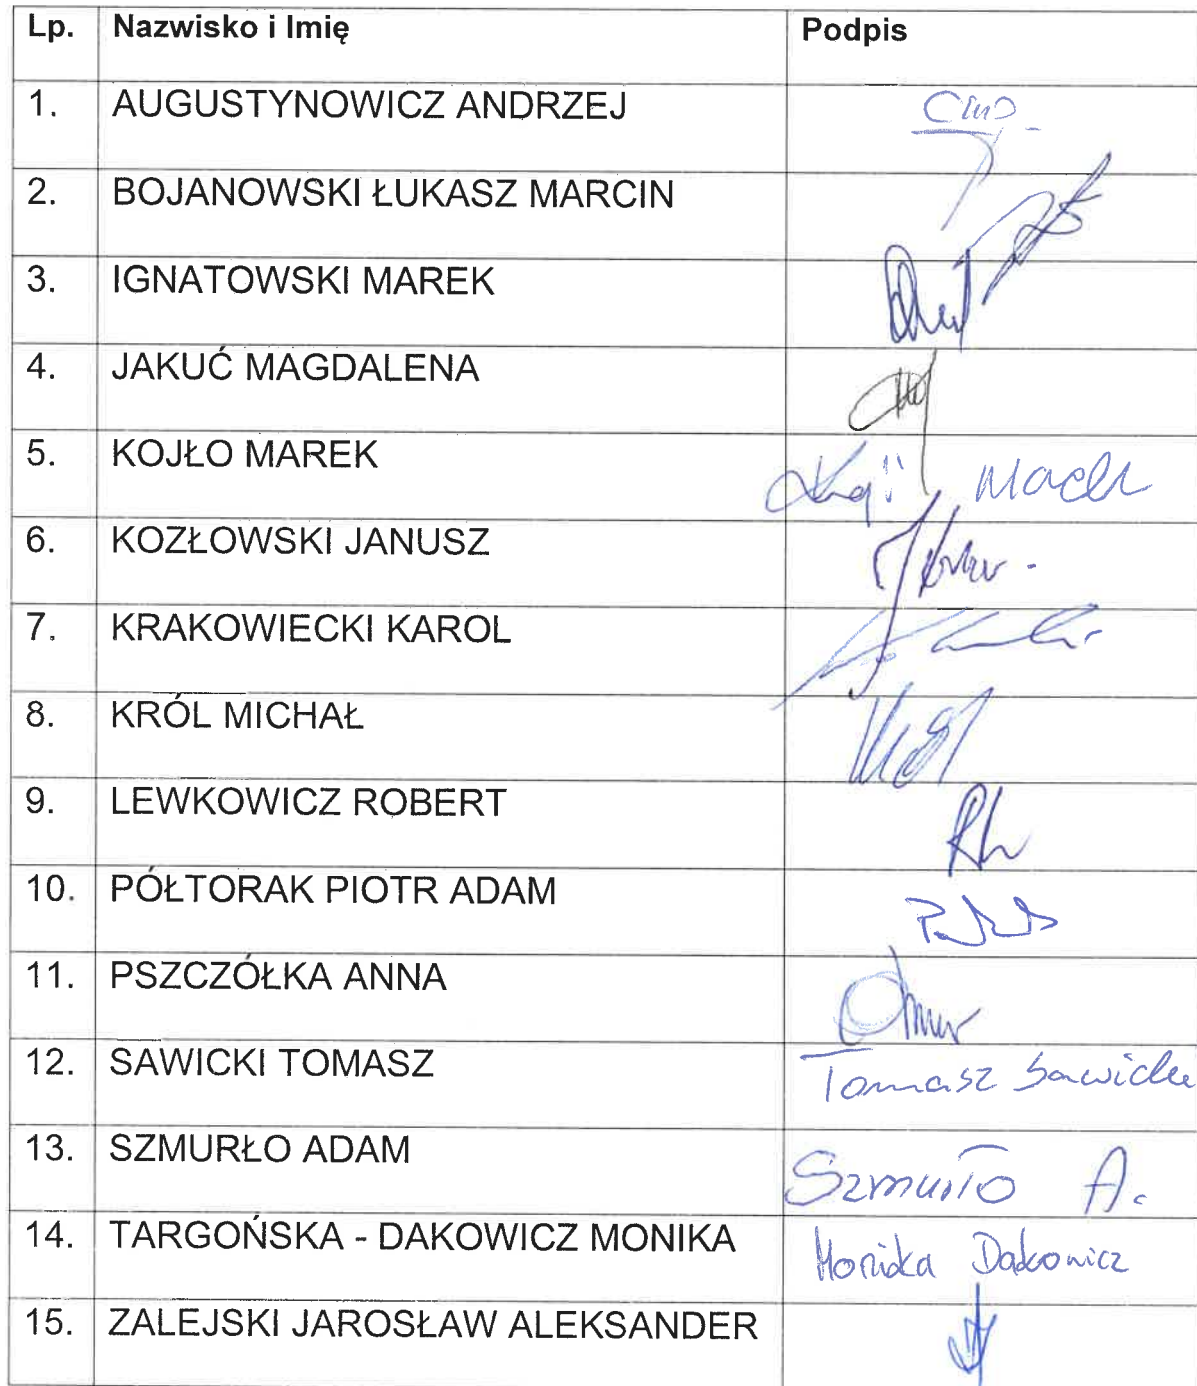 Lp. Nazwisko i Imię Podpis
1. AUGUSTYNOWICZ ANDRZEJ
2. BOJANOWSKI ŁUKASZ MARCIN
3. IGNATOWSKI MAREK
4. JAKUĆ MAGDALENA
5. KOJŁO MAREK
6. KOZŁOWSKI JANUSZ
7. KRAKOWIECKI KAROL
8. KRÓL MICHAŁ
9. LEWKOWICZ ROBERT
10. PÓŁTORAK PIOTR ADAM
11. PSZCZÓŁKA ANNA
12. SAWICKI TOMASZ Tomasz Sawicki
13. SZMURŁO ADAM Szmurło A.
14. TARGOŃSKA - DAKOWICZ MONIKA Monika Dakowicz
15. ZALEJSKI JAROSŁAW ALEKSANDER